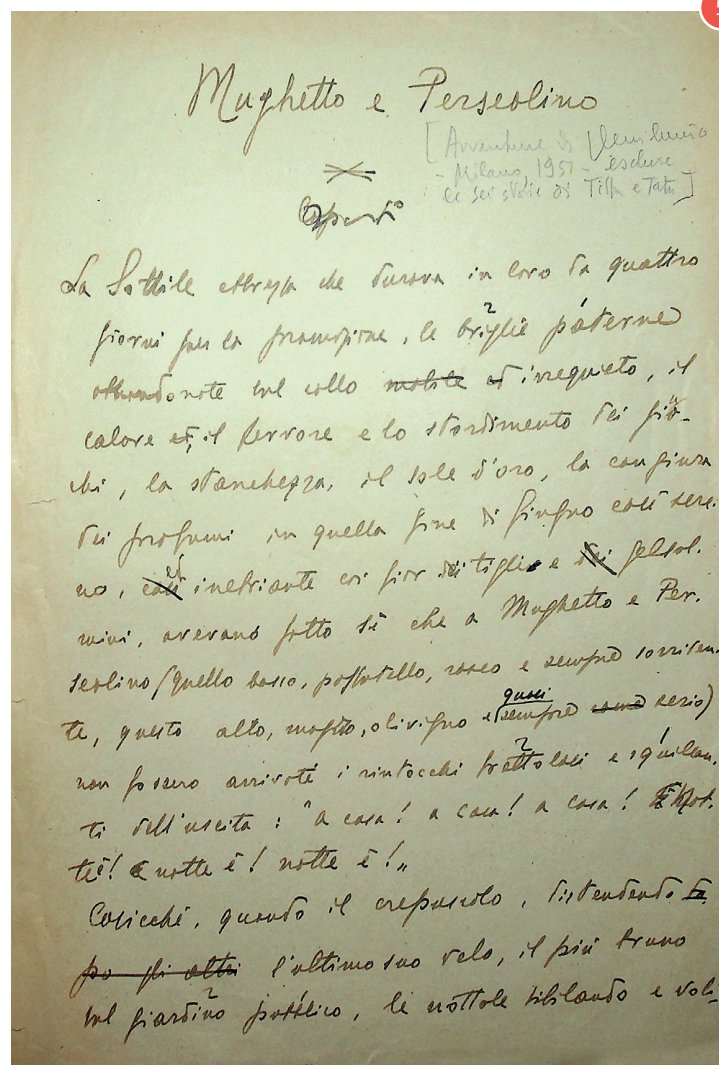 Mughetto e Perseolino
[Avventure di Plenilunio
- Milano, 1951 - escluse
le sei storie di Tiffa e Tatù]
La sottile ebrezza che durava in loro da quattro
giorni per la promozione, le briglie paterne
abbandonate sul collo mobile ed irrequieto, il
calore ed, il fervore e lo stordimento dei gio-
chi, la stanchezza, il sole d'oro, la congiura
dei profumi in quella fine di Giugno così sere-
no, così ed inebriante coi fior dei tigli e dei gelsol-
mini, avevano fatto sì che a Mughetto e Per-
seolino (quello basso, paffutello, roseo e sempre sorriden-
te, questo alto, magro, olivigno e quasi sempre come serio)
non fossero arrivati i rintocchi frettolosi e squillan-
ti dell'uscita: "a casa! a casa! a casa! È Not-
te è! È notte è! notte è!„
Cosicché, quando il crepuscolo, distendendo do-
po gli altri l'ultimo suo velo, il più bruno
sul giardino pubblico, le nottole sibilando e voli-